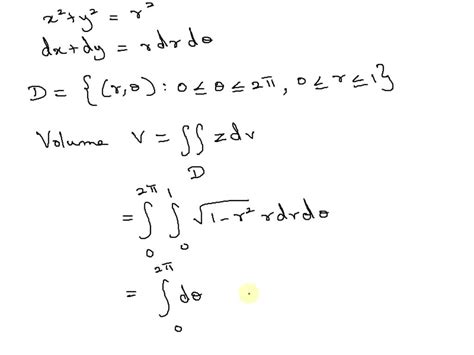 x² + y² = r²
dx + dy = r dr dθ
D = {(r, θ) : 0 ≤ θ ≤ 2π, 0 ≤ r ≤ 1}
Volume V = ∬_D z dv
= ∫₀^{2π} ∫₀^1 √(1 - r²) r dr dθ
= ∫₀^{2π} dθ